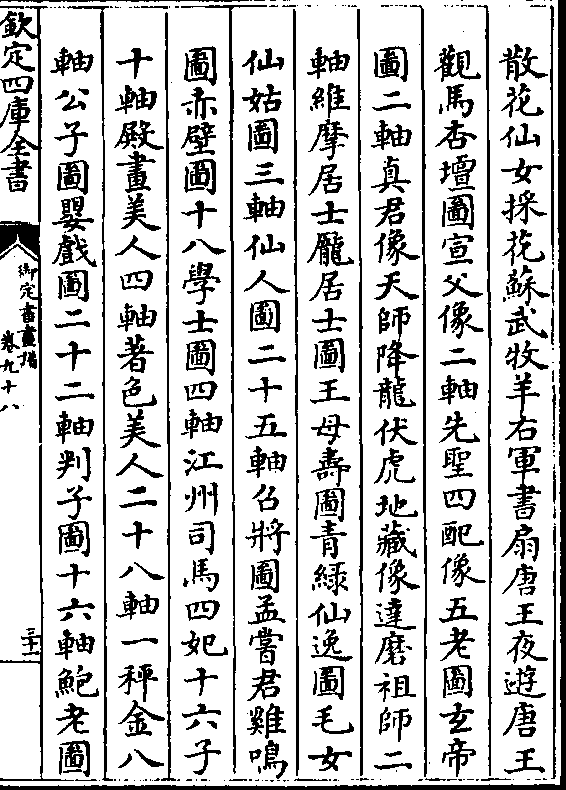 散花仙女採花蘇武牧羊右軍書扇唐王夜遊唐王
觀馬杏壇圖宣父像二軸先聖四配像五老圖玄帝
圖二軸真君像天師降龍伏虎地藏像達磨祖師二
軸維摩居士龐居士圖王母壽圖青綠仙逸圖毛女
仙姑圖三軸仙人圖二十五軸召將圖孟嘗君雞鳴
圖赤壁圖十八學士圖四軸江州司馬四妃十六子
十軸殿畫美人四軸著色美人二十八軸一秤金八
軸公子圖嬰戲圖二十二軸判子圖十六軸鮑老圖
欽定四庫全書
御定書畫譜
卷九十八
三十一